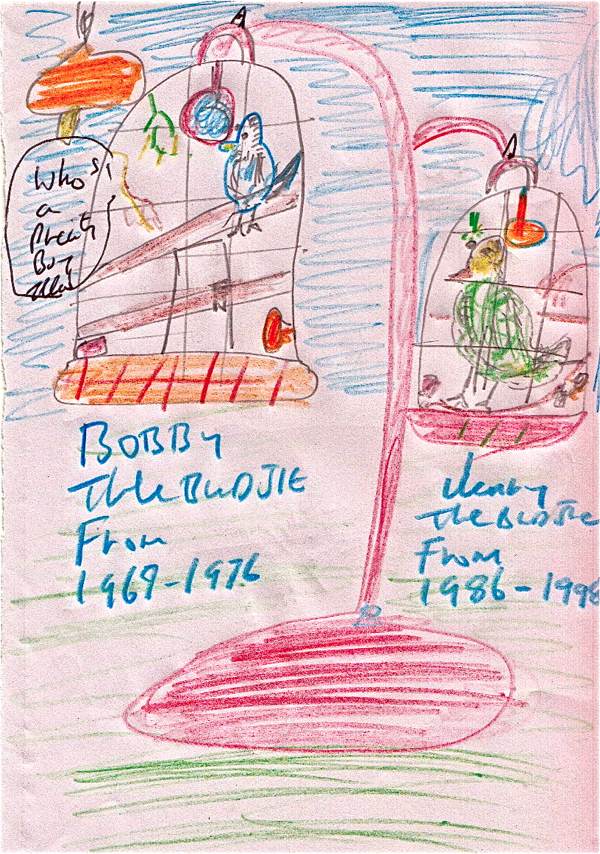 Who's
a
Pretty
Boy
BOBBY
The BUDJIE
From
1969-1976
The BUDJIE
From
1986-1998